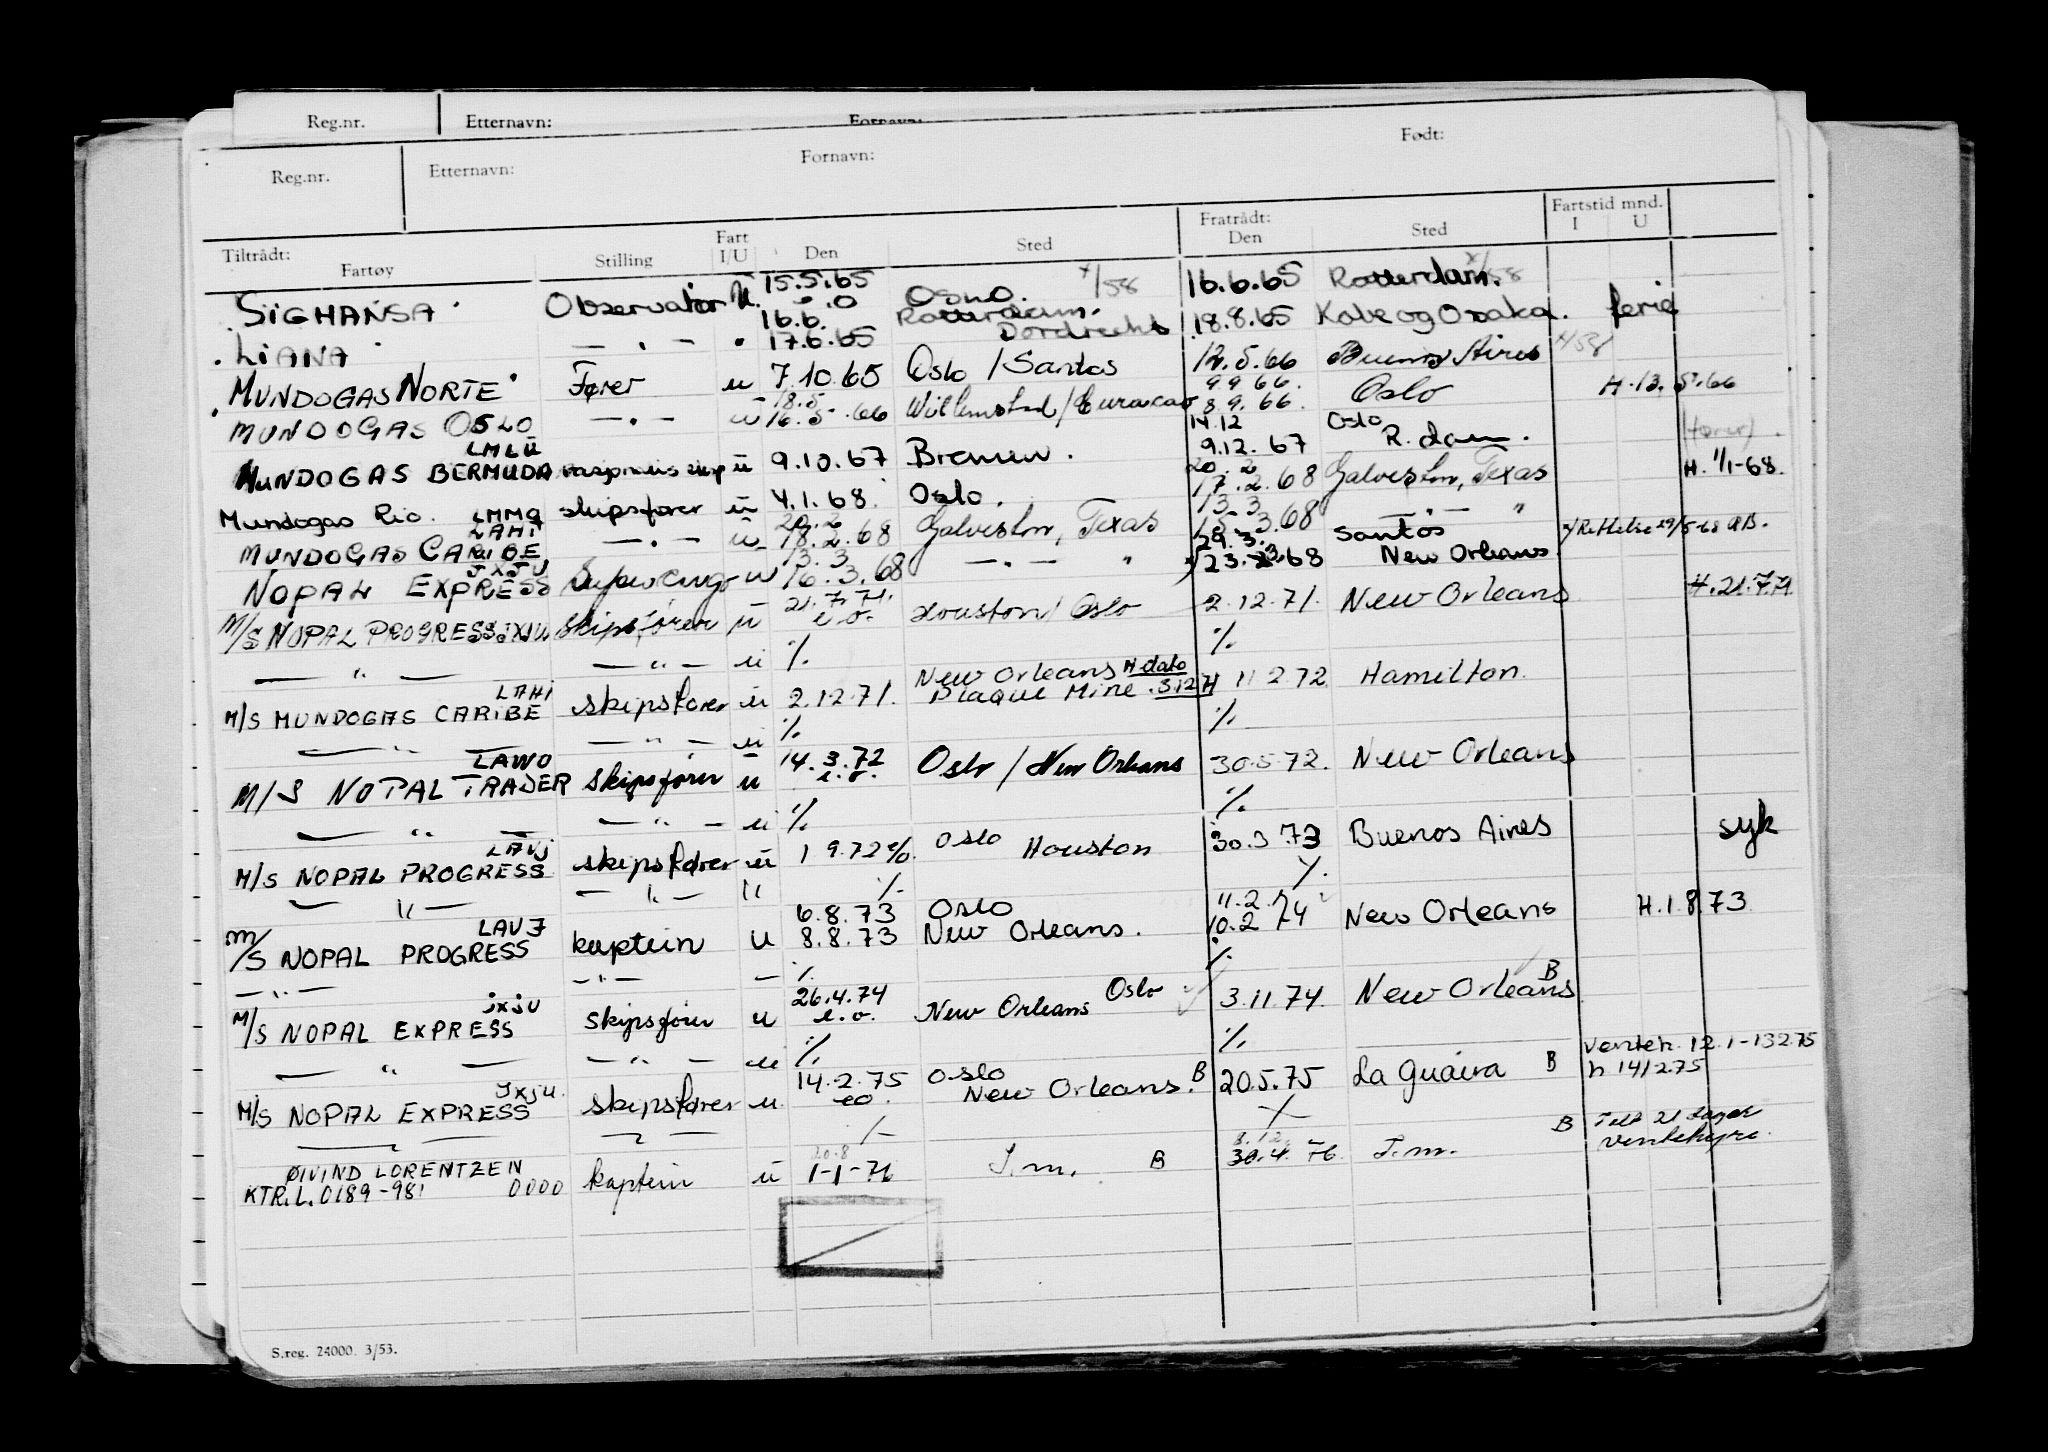 Reg.nr. Etternavn: Fornavn:
Reg.nr. Etternavn: Fornavn: Født:
Tiltrådt: Fartøy Stilling Fart I/U Den Sted Fratrådt: Den Sted Fartstid mnd. I U
SIGHANSA Observatør u. 15.5.65 Oslo. 16.6.65 Rotterdam.
LIANA — . — 16.6. 17.6.65 Rotterdam. Dordrecht 18.8.65 Kobe og Osaka. ferie
MUNDOGAS NORTE Fører u 7.10.65 Oslo / Santos 12.5.66 Buenos Aires
MUNDOGAS OSLO — . — u 18.5 16.5.66 Willemstad / Curacao 9.9.66. 8.9.66. Oslo H.13.5.66
LMLU
MUNDOGAS BERMUDA u 9.10.67 Bremen. 14.12 9.12.67 Oslo R.dam.
Mundogas Rio. LMMQ skipsfører u 4.1.68 Oslo. 20.2 17.2.68 Galveston, Texas H. 1/1-68.
LAHI
MUNDOGAS CARIBE — . — u 20.2 18.2.68 Galveston, Texas 13.3 15.3.68 — . — "
JXJU
NOPAL EXPRESS u 13.3 16.3.68 — . — " 29.3. 23.3.68 Santos New Orleans. x/ Rettelse 29/5-68 AB.
M/S NOPAL PROGRESS JXJU skipsfører u 21.7.71. e.o. Houston / Oslo 2.12.71. New Orleans H.21.7.71
— " — — " — u % %
LAHI
M/S MUNDOGAS CARIBE skipsfører u 2.12.71. New Orleans H dato Plaque Mine . 3.12 H 11 2 72 Hamilton.
— " — — " — u % %
LAWO
M/S NOPAL TRADER skipsfører u 14.3.72 e.o. Oslo / New Orleans 30.5.72. New Orleans
— " — — " — u % %
LAVJ
M/S NOPAL PROGRESS skipsfører u 1 9.72 e/o. Oslo Houston 30.3.73 Buenos Aires syk
— " — — " — " % %
LAVJ
M/S NOPAL PROGRESS kaptein u 6.8.73 8.8.73 Oslo New Orleans. 11.2. 10.2 74 New Orleans H.1.8.73
— " — — " — — % %
JXJU
M/S NOPAL EXPRESS skipsfører u 26.4.74 e.o. New Orleans Oslo 3.11.74. New Orleans B
— " — — " — u % %
JXJU.
M/S NOPAL EXPRESS skipsfører u 14.2.75 eo. Oslo New Orleans. B 20.5.75 La Guaira B venteh. 12.1-13275 h 141275
— " — — " — % %
ØIVIND LORENTZEN
KTR.L.0189-981 0000 kaptein u 20.8 1-1-76 T.m. B 8.12. 30.4.76 T.m. B Tilt 21 dager ventehyre.
S.reg. 24000. 3/53.